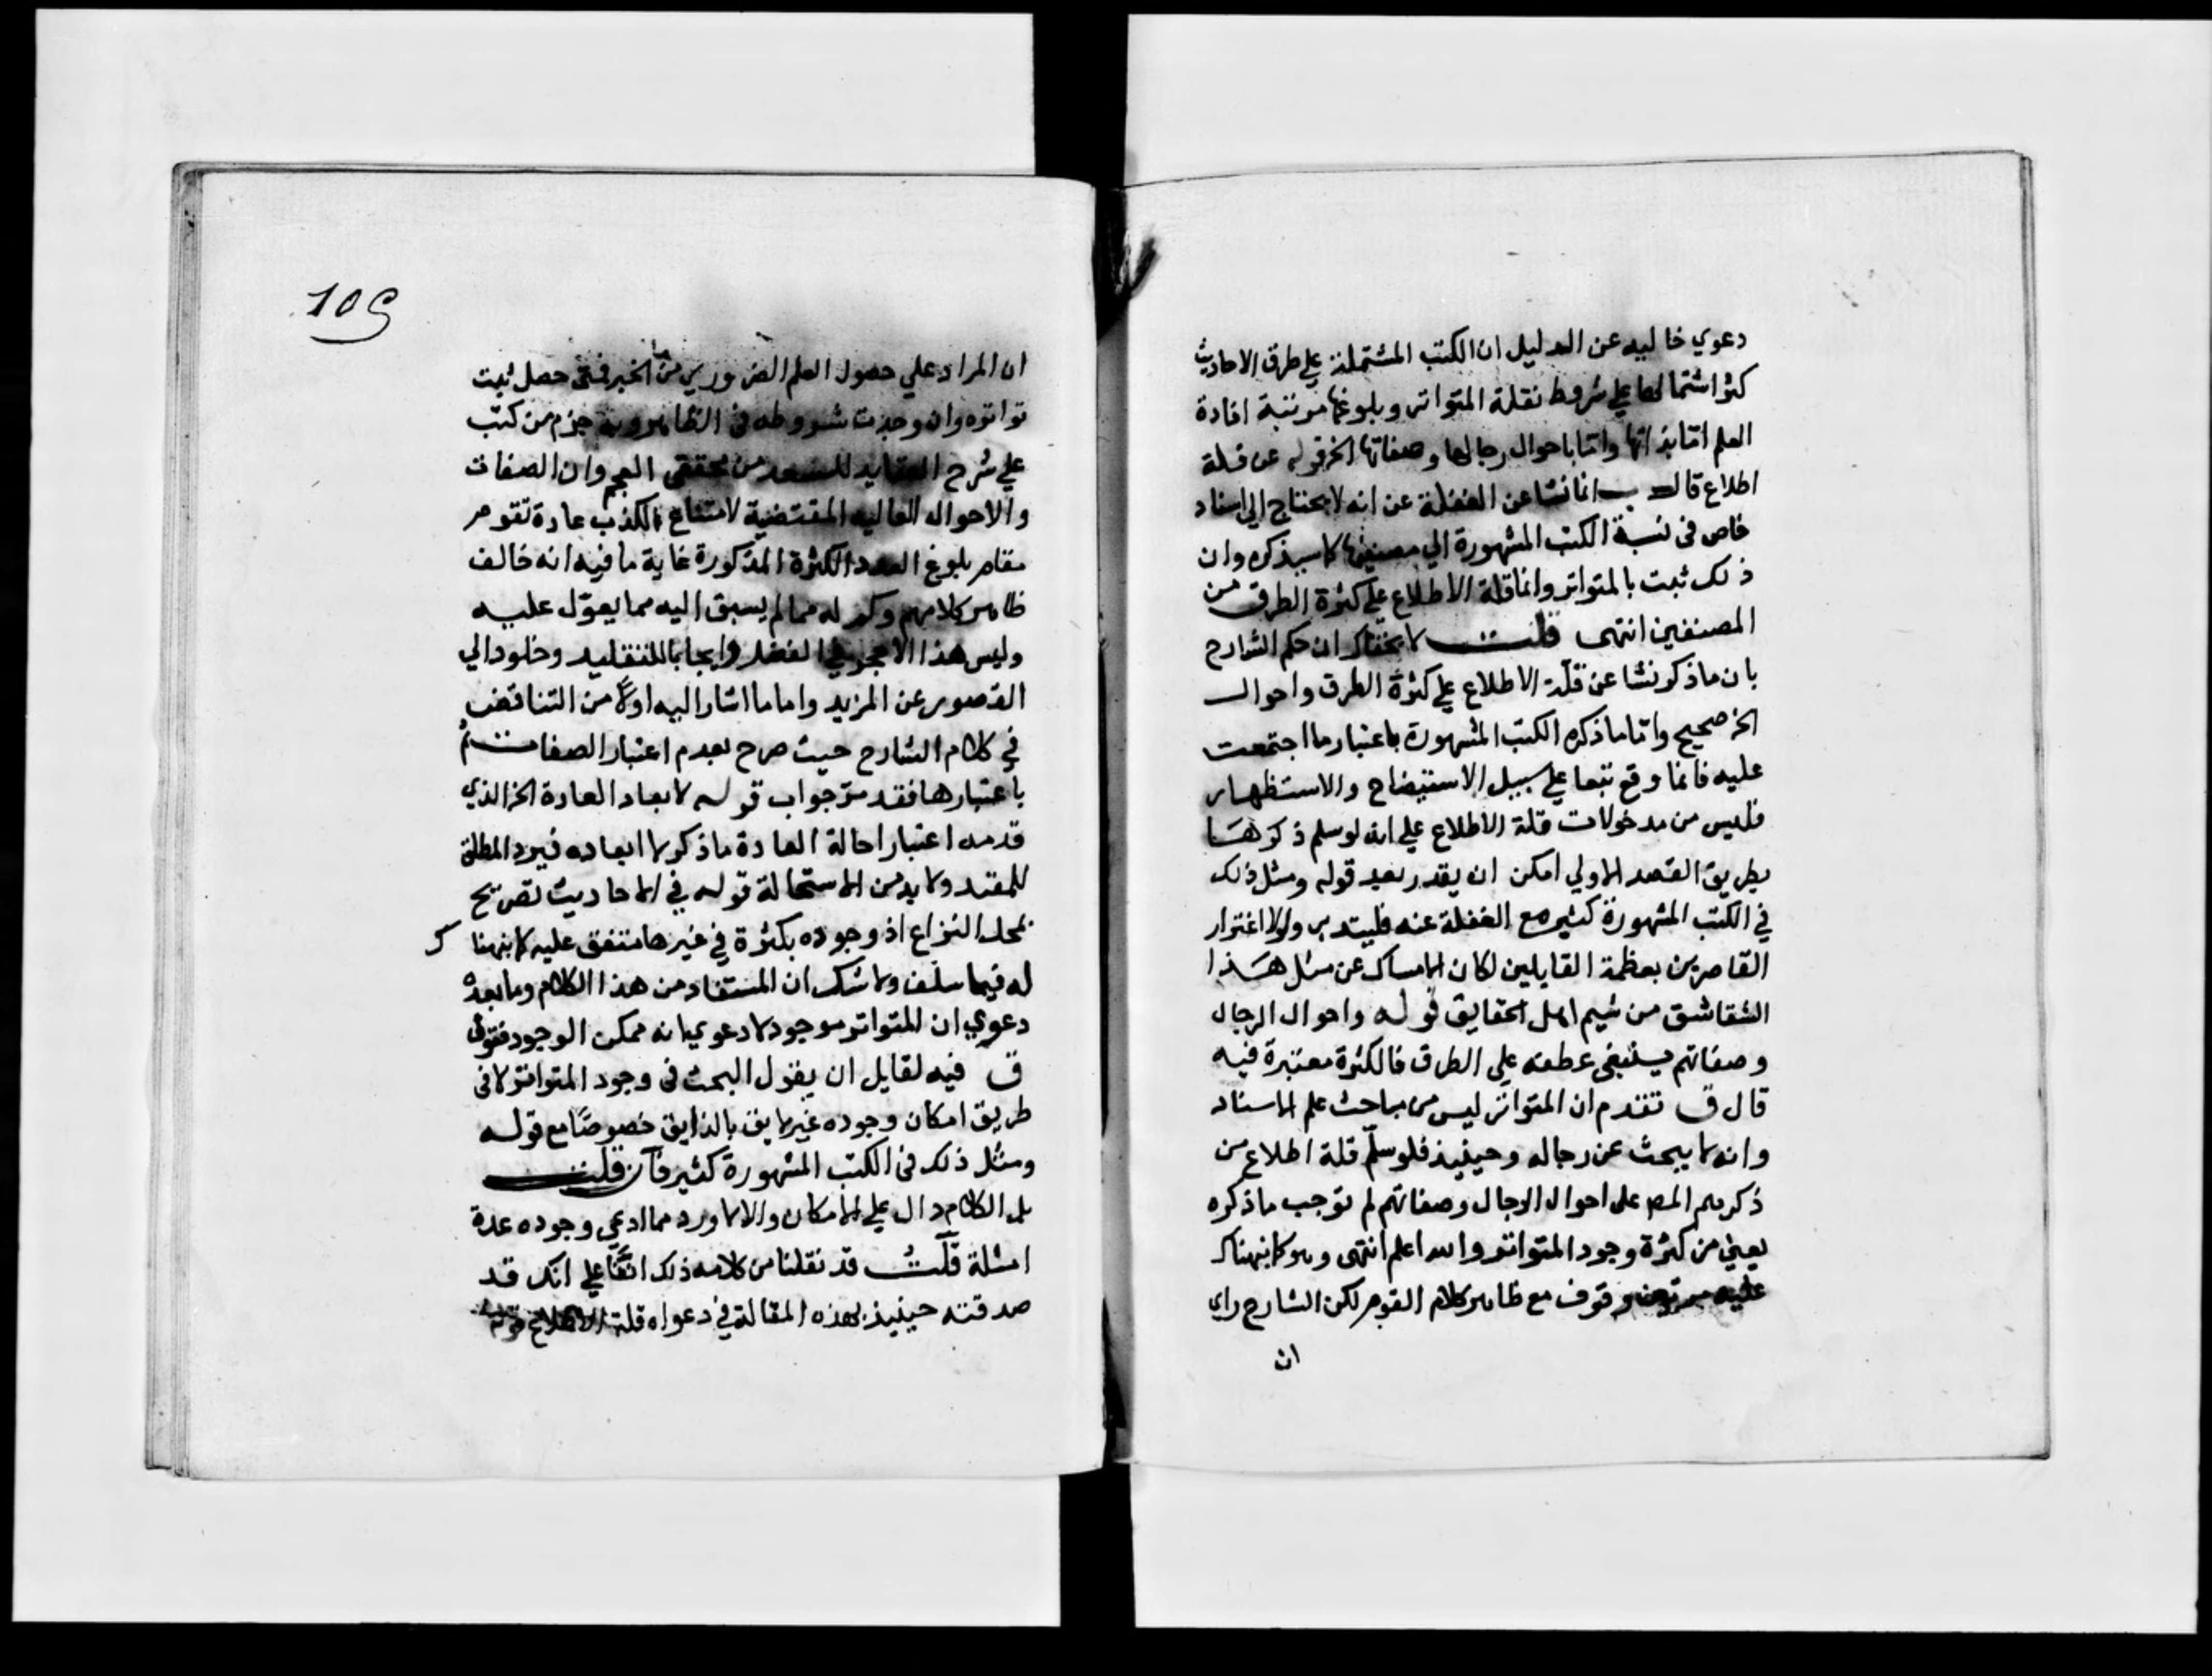 دعوي خاليه عن الدليل ان الكتب المشتملة علي طرق الاحاديث
كثر اشتمالها علي شروط نقلة المتواتر وبلوغها مرتبة افادة
العلم اما بذاتها واما باحوال رجالها وصفاتها الخ قوله عن قلة
اطلاع قال ب انما نشا عن الغفلة عن انه لا يحتاج الي اسناد
خاص في نسبة الكتب المشهورة الي مصنفيها كما سيذكره وان
ذلك ثبت بالمتواتر وانما قلة الاطلاع علي كثرة الطرق من
المصنفين انتهى قلت لا يخفاك ان حكم الشارح
بان ما ذكر نشا عن قلة الاطلاع علي كثرة الطرق واحوال
الخ صحيح واما ما ذكره الكتب المشهورة باعتبار ما اجتمعت
عليه فانما وقع تبعا علي سبيل الاستيضاح والاستظهار
فليس من مدخولات قلة الاطلاع علي انه لو سلم ذكرها
بطريق القصد الاولي امكن ان يقدر بعد قوله ومثل ذلك
في الكتب المشهورة كثير مع الغفلة عنه فليتدبر ولولا اغترار
القاصرين بعظمة القايلين لكان الامساك عن مثل هذا
الشقاشق من شيم اهل الحقايق قوله واحوال الرجال
وصفاتهم ينبغي عطفه علي الطرق فالكثرة معتبرة فيه
قال ق تقدم ان المتواتر ليس من مباحث علم الاسناد
وانه لا يبحث عن رجاله وحينيذ فلو سلم قلة اطلاع من
ذكرهم المص على احوال الرجال وصفاتهم لم توجب ما ذكره
يعني من كثرة وجود المتواتر والله اعلم انتهى وهو كما نبهناك
عليه وقوف مع ظاهر كلام القوم لكن الشارح راي
ان
109
ان المراد علي حصول العلم الضروري من الخبر فمتى حصل ثبت
تواتره وان وجدت شروطه في الظاهر وبه جزم من كتب
علي شرح العقايد للسعد من محققي العجم وان الصفات
والاحوال العاليه المقتضية لامتناع الكذب عادة تقوم
مقام بلوغ العدد الكثرة المذكورة غاية ما فيه انه خالف
ظاهر كلامهم وكم له مما لم يسبق اليه مما يعول عليه
وليس هذا الا حجر في الفضل وايجابا للتقليد وخلودا الي
القصور عن المزيد واما ما اشار اليه اولا من التناقض
في كلام الشارح حيث صرح بعدم اعتبار الصفات ثم
باعتبارها فقد مر جواب قوله لابعاد العادة الخ الذي
قدمه اعتبار احالة العادة ما ذكر لا ابعاده فيرد المطلق
للمقيد ولا بد من الاستحالة قوله في الاحاديث تصريح
بمحل النزاع اذ وجوده بكثرة في غيرها متفق عليه كما نبهنا ك
له فيما سلف ولا شك ان المستفاد من هذا الكلام وما بعده
دعوي ان المتواتر موجود لا دعوي انه ممكن الوجود فقول
ق فيه لقايل ان يقول البحث في وجود المتواتر لا في
طريق امكان وجوده غير لايق بالذايق خصوصا مع قوله
ومثل ذلك في الكتب المشهورة كثير فان قلت
بل الكلام دال علي الامكان والا لاورد مما ادعي وجوده عدة
امثلة قلت قد نقلنا من كلامه ذلك انفا علي انك قد
صدقته حينيذ بهذه المقالة في دعواه قلة الاطلاع قوله